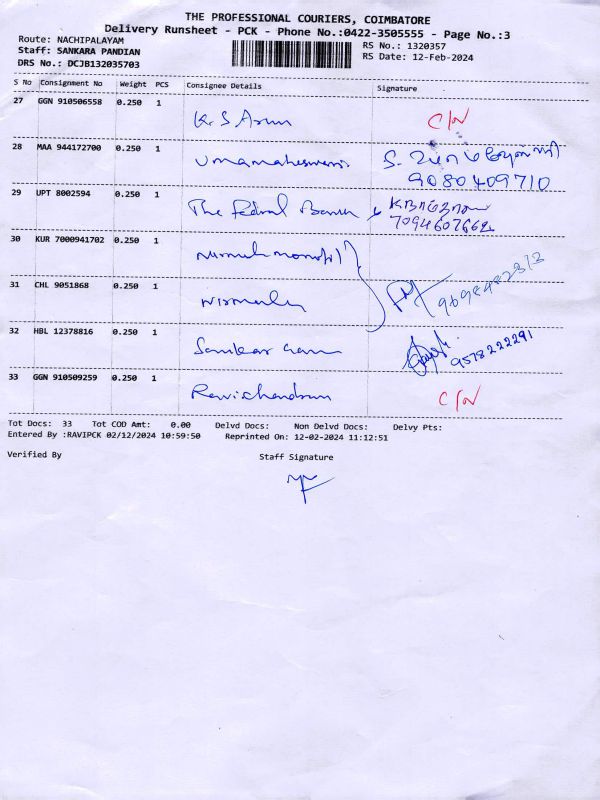 THE PROFESSIONAL COURIERS, COIMBATORE
Delivery Runsheet - PCK - Phone No.:0422-3505555 - Page No.:3
Route: NACHIPALAYAM
RS No.: 1320357
Staff: SANKARA PANDIAN
RS Date: 12-Feb-2024
DRS No.: DCJB132035703
S No Consignment No Weight PCS Consignee Details Signature
27 GGN 910506558 0.250 1 K. S Arun C/N
28 MAA 944172700 0.250 1 Umamaheswari
9080409710
29 UPT 8002594 0.250 1 The Fedral Bank
30 KUR 7000941702 0.250 1
31 CHL 9051868 0.250 1 Nirmala
32 HBL 12378816 0.250 1 9578222291
33 GGN 910509259 0.250 1 Ravichandran C/N
Tot Docs: 33 Tot COD Amt: 0.00 Delvd Docs: Non Delvd Docs: Delvy Pts:
Entered By :RAVIPCK 02/12/2024 10:59:50 Reprinted On: 12-02-2024 11:12:51
Verified By Staff Signature